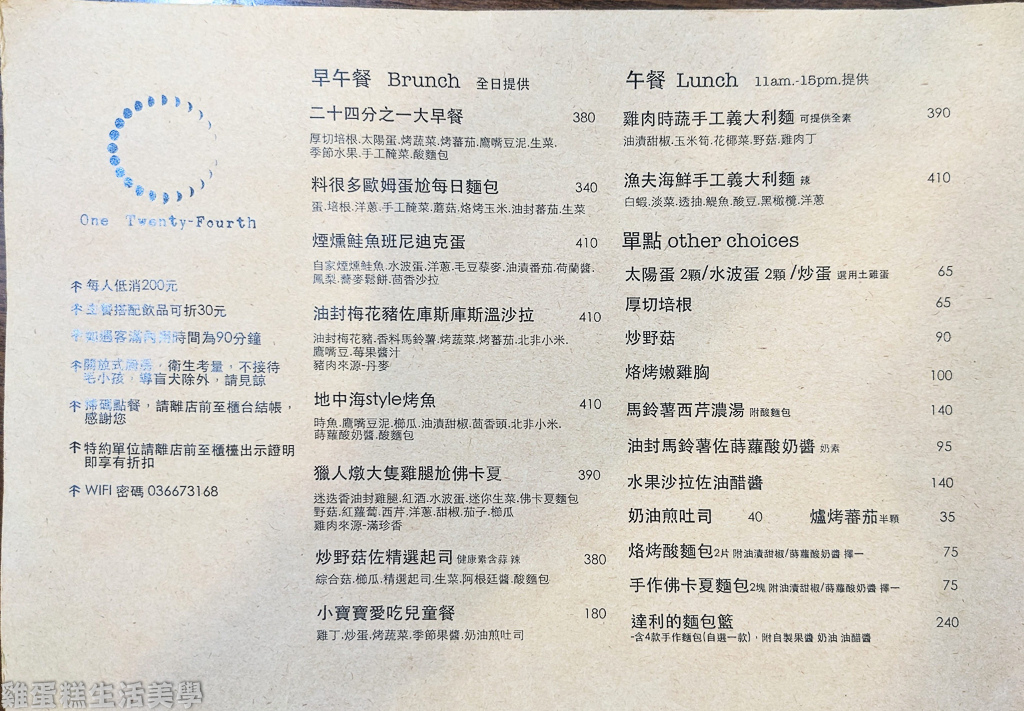 One Twenty-Fourth
每人低消200元
主餐搭配飲品可折30元
時間為90分鐘
開放式廚房，衛生考量，不接待
毛小孩，導盲犬除外，請見諒
掃碼點餐，請離店前至櫃台結帳，
感謝您
特約單位請離店前至櫃檯出示證明
即享有折扣
WIFI 密碼 036673168
早午餐 Brunch 全日提供
二十四分之一大早餐 380
厚切培根.太陽蛋.烤蔬菜.烤蕃茄.鷹嘴豆泥.生菜.
季節水果.手工醃菜.酸麵包
料很多歐姆蛋尬每日麵包 340
蛋.培根.洋蔥.手工醃菜.蘑菇.烙烤玉米.油封蕃茄.生菜
煙燻鮭魚班尼迪克蛋 410
自家煙燻鮭魚.水波蛋.洋蔥.毛豆藜麥.油漬番茄.荷蘭醬.
鳳梨.蕎麥鬆餅.茴香沙拉
油封梅花豬佐庫斯庫斯溫沙拉 410
油封梅花豬.香料馬鈴薯.烤蔬菜.烤蕃茄.北非小米.
鷹嘴豆.莓果醬汁
豬肉來源-丹麥
地中海style烤魚 410
時魚.鷹嘴豆泥.櫛瓜.油漬甜椒.茴香頭.北非小米.
蒔蘿酸奶醬.酸麵包
獵人燉大隻雞腿尬佛卡夏 390
迷迭香油封雞腿.紅酒.水波蛋.迷你生菜.佛卡夏麵包
野菇.紅蘿蔔.西芹.洋蔥.甜椒.茄子.櫛瓜
雞肉來源-滿珍香
炒野菇佐精選起司 健康素含蒜 辣 380
綜合菇.櫛瓜.精選起司.生菜.阿根廷醬.酸麵包
小寶寶愛吃兒童餐 180
雞丁.炒蛋.烤蔬菜.季節果醬.奶油煎吐司
午餐 Lunch 11am.-15pm.提供
雞肉時蔬手工義大利麵 可提供全素 390
油漬甜椒.玉米筍.花椰菜.野菇.雞肉丁
漁夫海鮮手工義大利麵 辣 410
白蝦.淡菜.透抽.鯷魚.酸豆.黑橄欖.洋蔥
單點 other choices
太陽蛋 2顆/水波蛋 2顆 /炒蛋 選用土雞蛋 65
厚切培根 65
炒野菇 90
烙烤嫩雞胸 100
馬鈴薯西芹濃湯 附酸麵包 140
油封馬鈴薯佐蒔蘿酸奶醬 奶素 95
水果沙拉佐油醋醬 140
奶油煎吐司 40 爐烤蕃茄半顆 35
烙烤酸麵包2片 附油漬甜椒/蒔蘿酸奶醬 擇一 75
手作佛卡夏麵包2塊 附油漬甜椒/蒔蘿酸奶醬 擇一 75
達利的麵包籃 240
-含4款手作麵包(自選一款)，附自製果醬 奶油 油醋醬
雞蛋糕生活美學